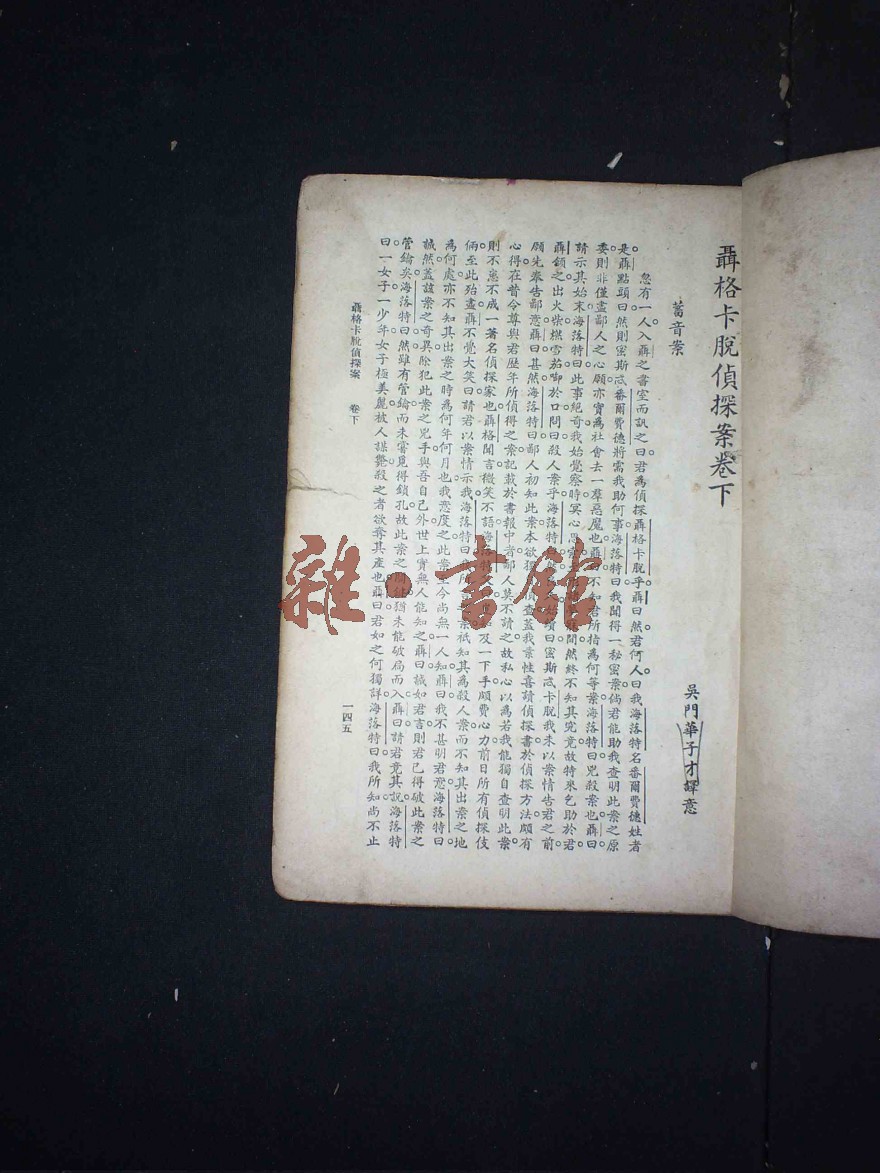 聶格卡脫偵探案卷下
吳門華子才譯意
蓄音案
忽有一人入聶之書室而訊之曰。君為偵探聶格卡脫乎。聶曰。然。君何人。曰。我海落特名番爾費德姓者
是。聶點頭曰。然則密斯忒番爾費德將需我助何事。海落特曰。我聞得一秘密案。倘君能助我查明此案之原
委。則非僅盡鄙人之心願。亦實為社會去一羣惡魔也。聶曰。不知君所指為何等案。海落特曰。兇殺案也。聶曰。
請示其始末。海落特曰。此事絕奇。我始覺察時。冥心思索 間。然終不知其究竟。故特來乞助於君。
聶頷之。出火柴燃雪茄啣於口。問曰。殺人案乎。海落特曰。然。 續曰。密斯忒卡脫。我未以案情告君之前。
願先奉告鄙意。聶曰。甚然。海落特曰。鄙人初知此案。本欲獨 偵查。蓋我素性喜讀偵探書。於偵探方法。頗有
心得。在昔令尊與君歷年所偵得之案。記載於書報中者。鄙人莫不讀之。故私心以為若我能獨自查明此案。
則不患不成一著名偵探家也。聶格聞言。微笑不語。海落特又 及一下手。頗費心力。前日所有偵探伎
倆。至此殆盡。聶不覺大笑曰。請君以案情示我。海落特曰。 所 之案。祇知其為殺人案。而不知其出案之地
為何處。亦不知其出案之時為何年何月也。我懸度之。此案至今尚無一人知。聶曰。我不甚明君意。海落特曰。
誠然。蓋該案之奇異。除犯此案之兇手與吾自己外。世上實無人能知之。聶曰。誠如君言。則君已得破此案之
管鑰矣。海落特曰。然。雖有管鑰而未嘗覓得鎖孔。故此案之關鍵。猶未能破局而入。聶曰。請君竟其說。海落特
曰。一女子。一少年女子。極美麗。被人謀斃。殺之者欲奪其產也。聶曰。君如之何獨詳。海落特曰。我所知尚不止
聶格卡脫偵探案 卷下
一四五
雜·書館